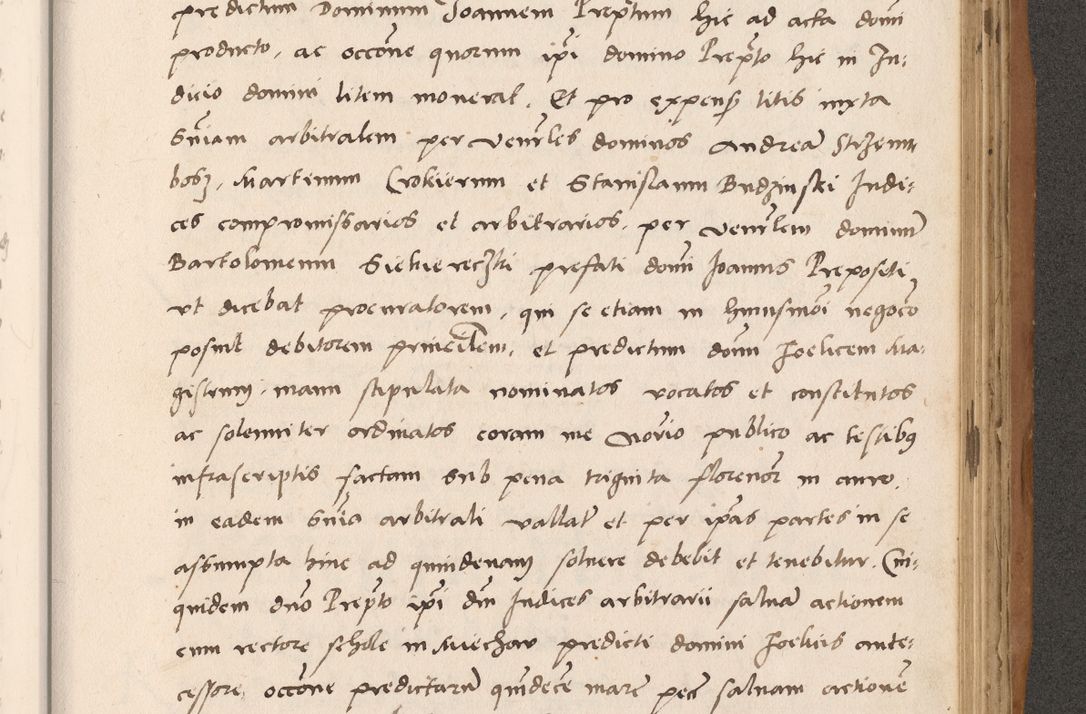 predictum Dominum Joannem Prep̃tum hic ad acta domi
producto, ac occõne quorum ip̃i domino Prep̃to hic in Ju:
dicio domini litem moverat. Et pro expens̃ litis iuxta
Sñiam arbitralem per Venr̃les dominos Andreã Strzem
bosz, Martinum Crokierum et Stanislaum Budzinski Judi:
ces compromissarios et arbitrarios, per Venr̃lem dominũ
Bartolomeum Siekierecz​ki prefati domi Joannis Prepositi,
vt dicebat procuratorem, qui se etiam in huiusmõi negocõ
posuit debitorem et predictum domi Foelicem Ma:
gistrum, manu stipulata nominatos vocatos et constitutos
ac solenniter ordinatos coram me Notrio publico ac testibus
infrascriptis factam Sub pena triginta florenor̃ in auro,
in eadem Sñia arbitrali vallat̃ et per ip̃as partes in se
assumpta hinc ad quindenam solvere debebit et tenebitur. Cui:
quidem dño Prep̃to ip̃i dñi Judices arbitrarii salvã actionem
cum rectore schole in Miechow predicti domini Foelicis ante:
cessore, occõne predictarũ quindecẽ marc̃ pec̃ salvam actionẽ